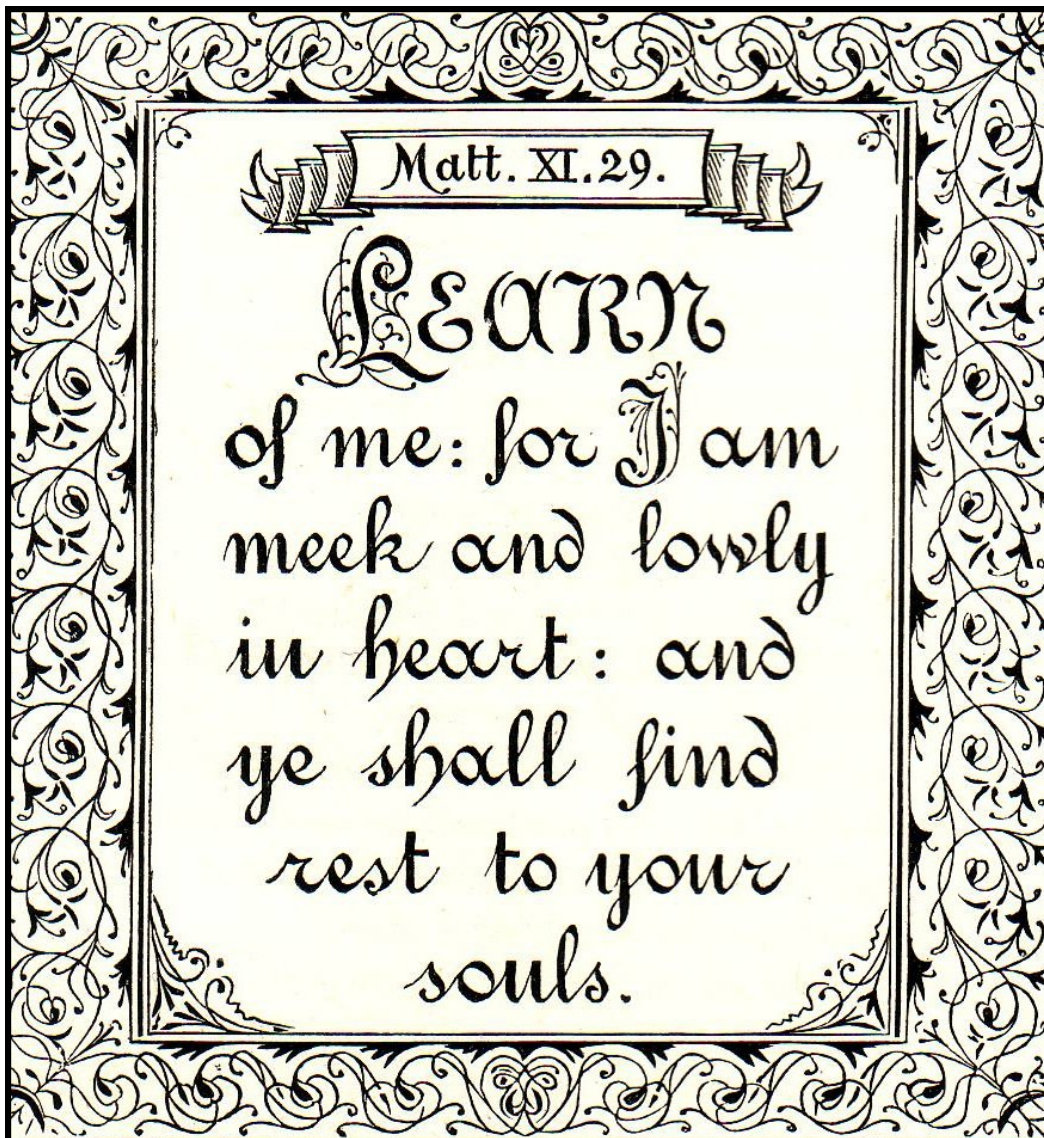 Matt. XI. 29.
LEARN
of me: for I am
meek and lowly
in heart: and
ye shall find
rest to your
souls.